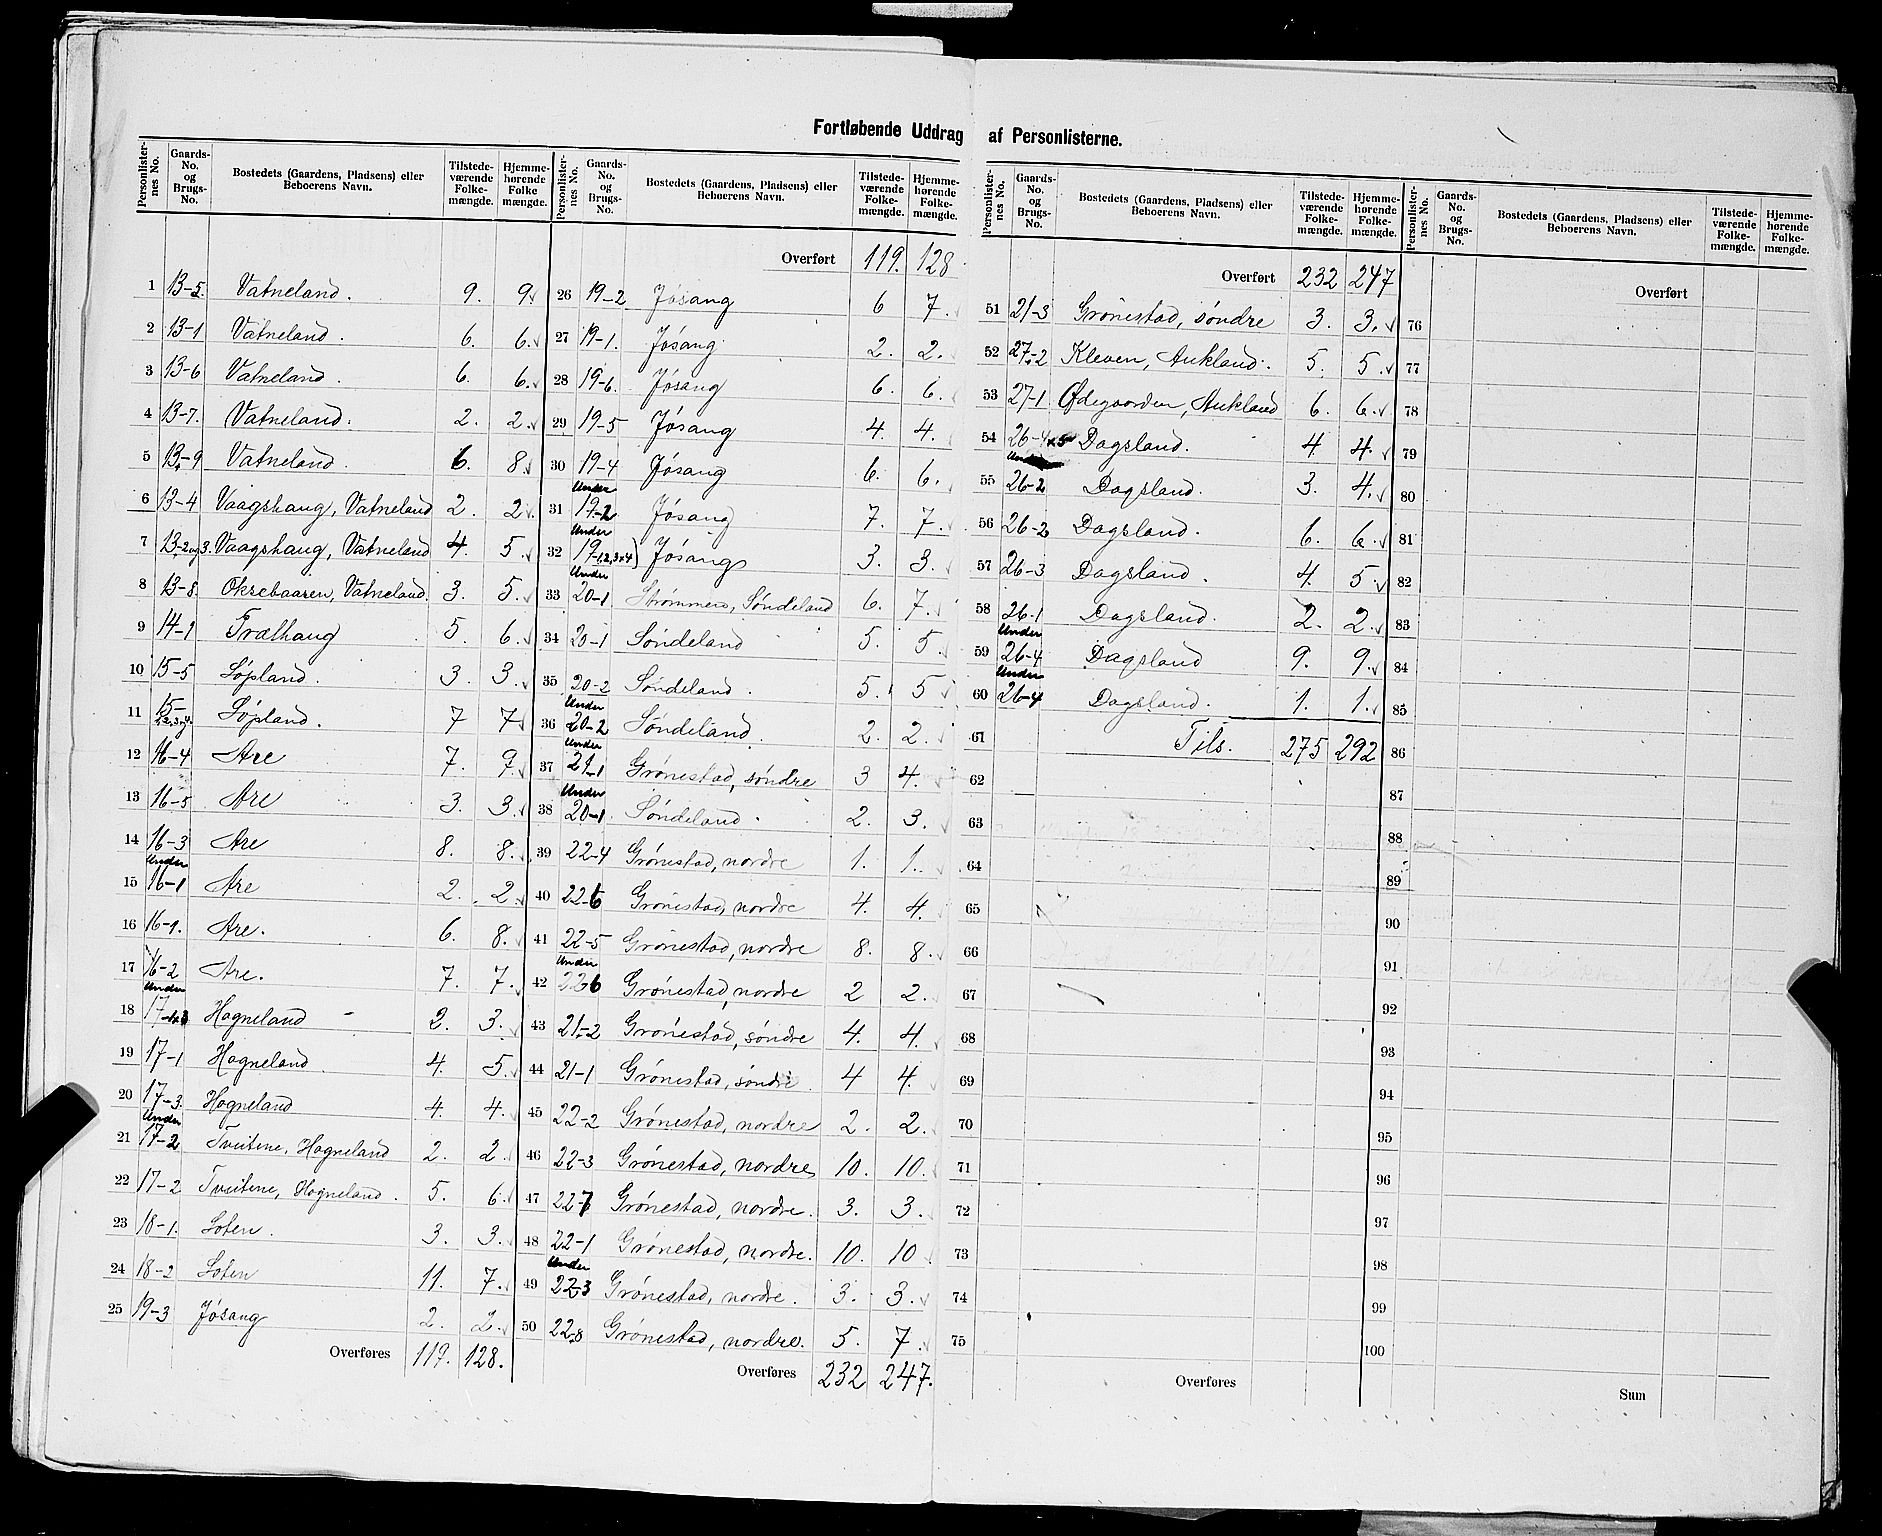 Fortløbende Uddrag af Personlisterne.
Personlister-nes No. Gaards-No. og Brugs-No. Bostedets (Gaardens, Pladsens) eller Beboerens Navn. Tilstede-værende Folke-mængde. Hjemme-hørende Folke mængde.
1 13-5. Vatneland. 9. 9.
2 13-1 Vatneland. 6. 6.
3 13-6 Vatneland. 6. 6.
4 13-7. Vatneland. 2. 2.
5 13-9 Vatneland. 6. 8
6 13-4 Vaagshaug, Vatneland 2. 2.
7 13-2og3. Vaagshaug, Vatneland 4. 5.
8 13-8. Okrebaaren, Vatneland. 3. 5.
9 14-1 Frælhaug 5. 6.
10 15-5 Søpland. 3. 3.
11 15-1,2,3og4. Søpland. 7 7
12 16-4 Are 7. 9.
13 16-5 Are 3. 3.
14 16-3 Are 8. 8.
15 Under 16-1 Are 2. 2.
16 16-1. Are. 6. 8.
17 16-2 Are. 7. 7.
18 Under 17-1x3 Hogneland 2. 3.
19 17-1 Hogneland 4. 5.
20 17-3. Hogneland 4. 4.
21 Under 17-2 Tveitene, Hogneland 2. 2.
22 17-2 Tveitene, Hogneland. 5. 6.
23 18-1. Loten. 3. 3.
24 18-2 Loten 11. 7.
25 19-3 Jøsang 2. 2.
Overføres 119. 128.
Personlister-nes No. Gaards-No. og Brugs-No. Bostedets (Gaardens, Pladsens) eller Beboerens Navn. Tilstede-værende Folke-mængde. Hjemme-hørende Folke-mængde.
Overført 119. 128
26 19-2 Jøsang 6 7.
27 19-1. Jøsang 2. 2.
28 19-6. Jøsang 6 6.
29 19-5 Jøsang 4. 4.
30 19-4 Jøsang 6. 6.
31 Under 19-2 Jøsang 7. 7.
32 Under 19-1,2,3x4) Jøsang 3. 3.
33 Under 20-1 Strømmen, Søndeland 6. 7.
34 20-1 Søndeland 5. 5.
35 20-2 Søndeland. 5. 5
36 Under 20-2 Søndeland. 2. 2.
37 Under 21-1 Grønestad, søndre 3 4.
38 Under 20-1 Søndeland. 2. 3.
39 22-4 Grønestad, nordre 1. 1.
40 22-6 Grønestad, nordre 4. 4.
41 22-5 Grønestad, nordre 8. 8.
42 Under 22-6 Grønestad, nordre 2 2.
43 21-2 Grønestad, søndre 4. 4.
44 21-1 Grønestad, søndre. 4 4.
45 22-2 Grønestad, nordre 2. 2.
46 22-3 Grønestad, nordre 10. 10.
47 22-7 Grønestad, nordre. 3. 3.
48 22-1 Grønestad, nordre. 10. 10
49 Under 22-3 Grønestad, nordre. 3. 3.
50 22-8 Grønestad, nordre. 5. 7.
Overføres 232 247.
Personlister-nes No. Gaards-No. og Brugs-No. Bostedets (Gaardens, Pladsens) eller Beboerens Navn. Tilstede-værende Folke-mængde. Hjemme-hørende Folke-mængde.
Overført 232 247
51 21-3 Grønestad, søndre 3. 3.
52 27-2 Kleven, Aukland. 5. 5.
53 27-1 Ødegaarden, Aukland 6. 6.
54 26-4x5 Dagsland. 4 4.
55 Under 26-2 Dagsland. 3. 4.
56 26-2 Dagsland. 6. 6.
57 26-3 Dagsland. 4. 5.
58 26-1 Dagsland. 2. 2.
59 Under 26-4 Dagsland 9. 9.
60 Under 26-4 Dagsland. 1. 1.
61 Tils. 275 292
62
63
64
65
66
67
68
69
70
71
72
73
74
75
Overføres
Personlister-nes No. Gaards-No. og Brugs-No. Bostedets (Gaardens, Pladsens) eller Beboerens Navn. Tilstede-værende Folke-mængde. Hjemme-hørende Folke-mængde.
Overført
76
77
78
79
80
81
82
83
84
85
86
87
88
89
90
91
92
93
94
95
96
97
98
99
100
Sum